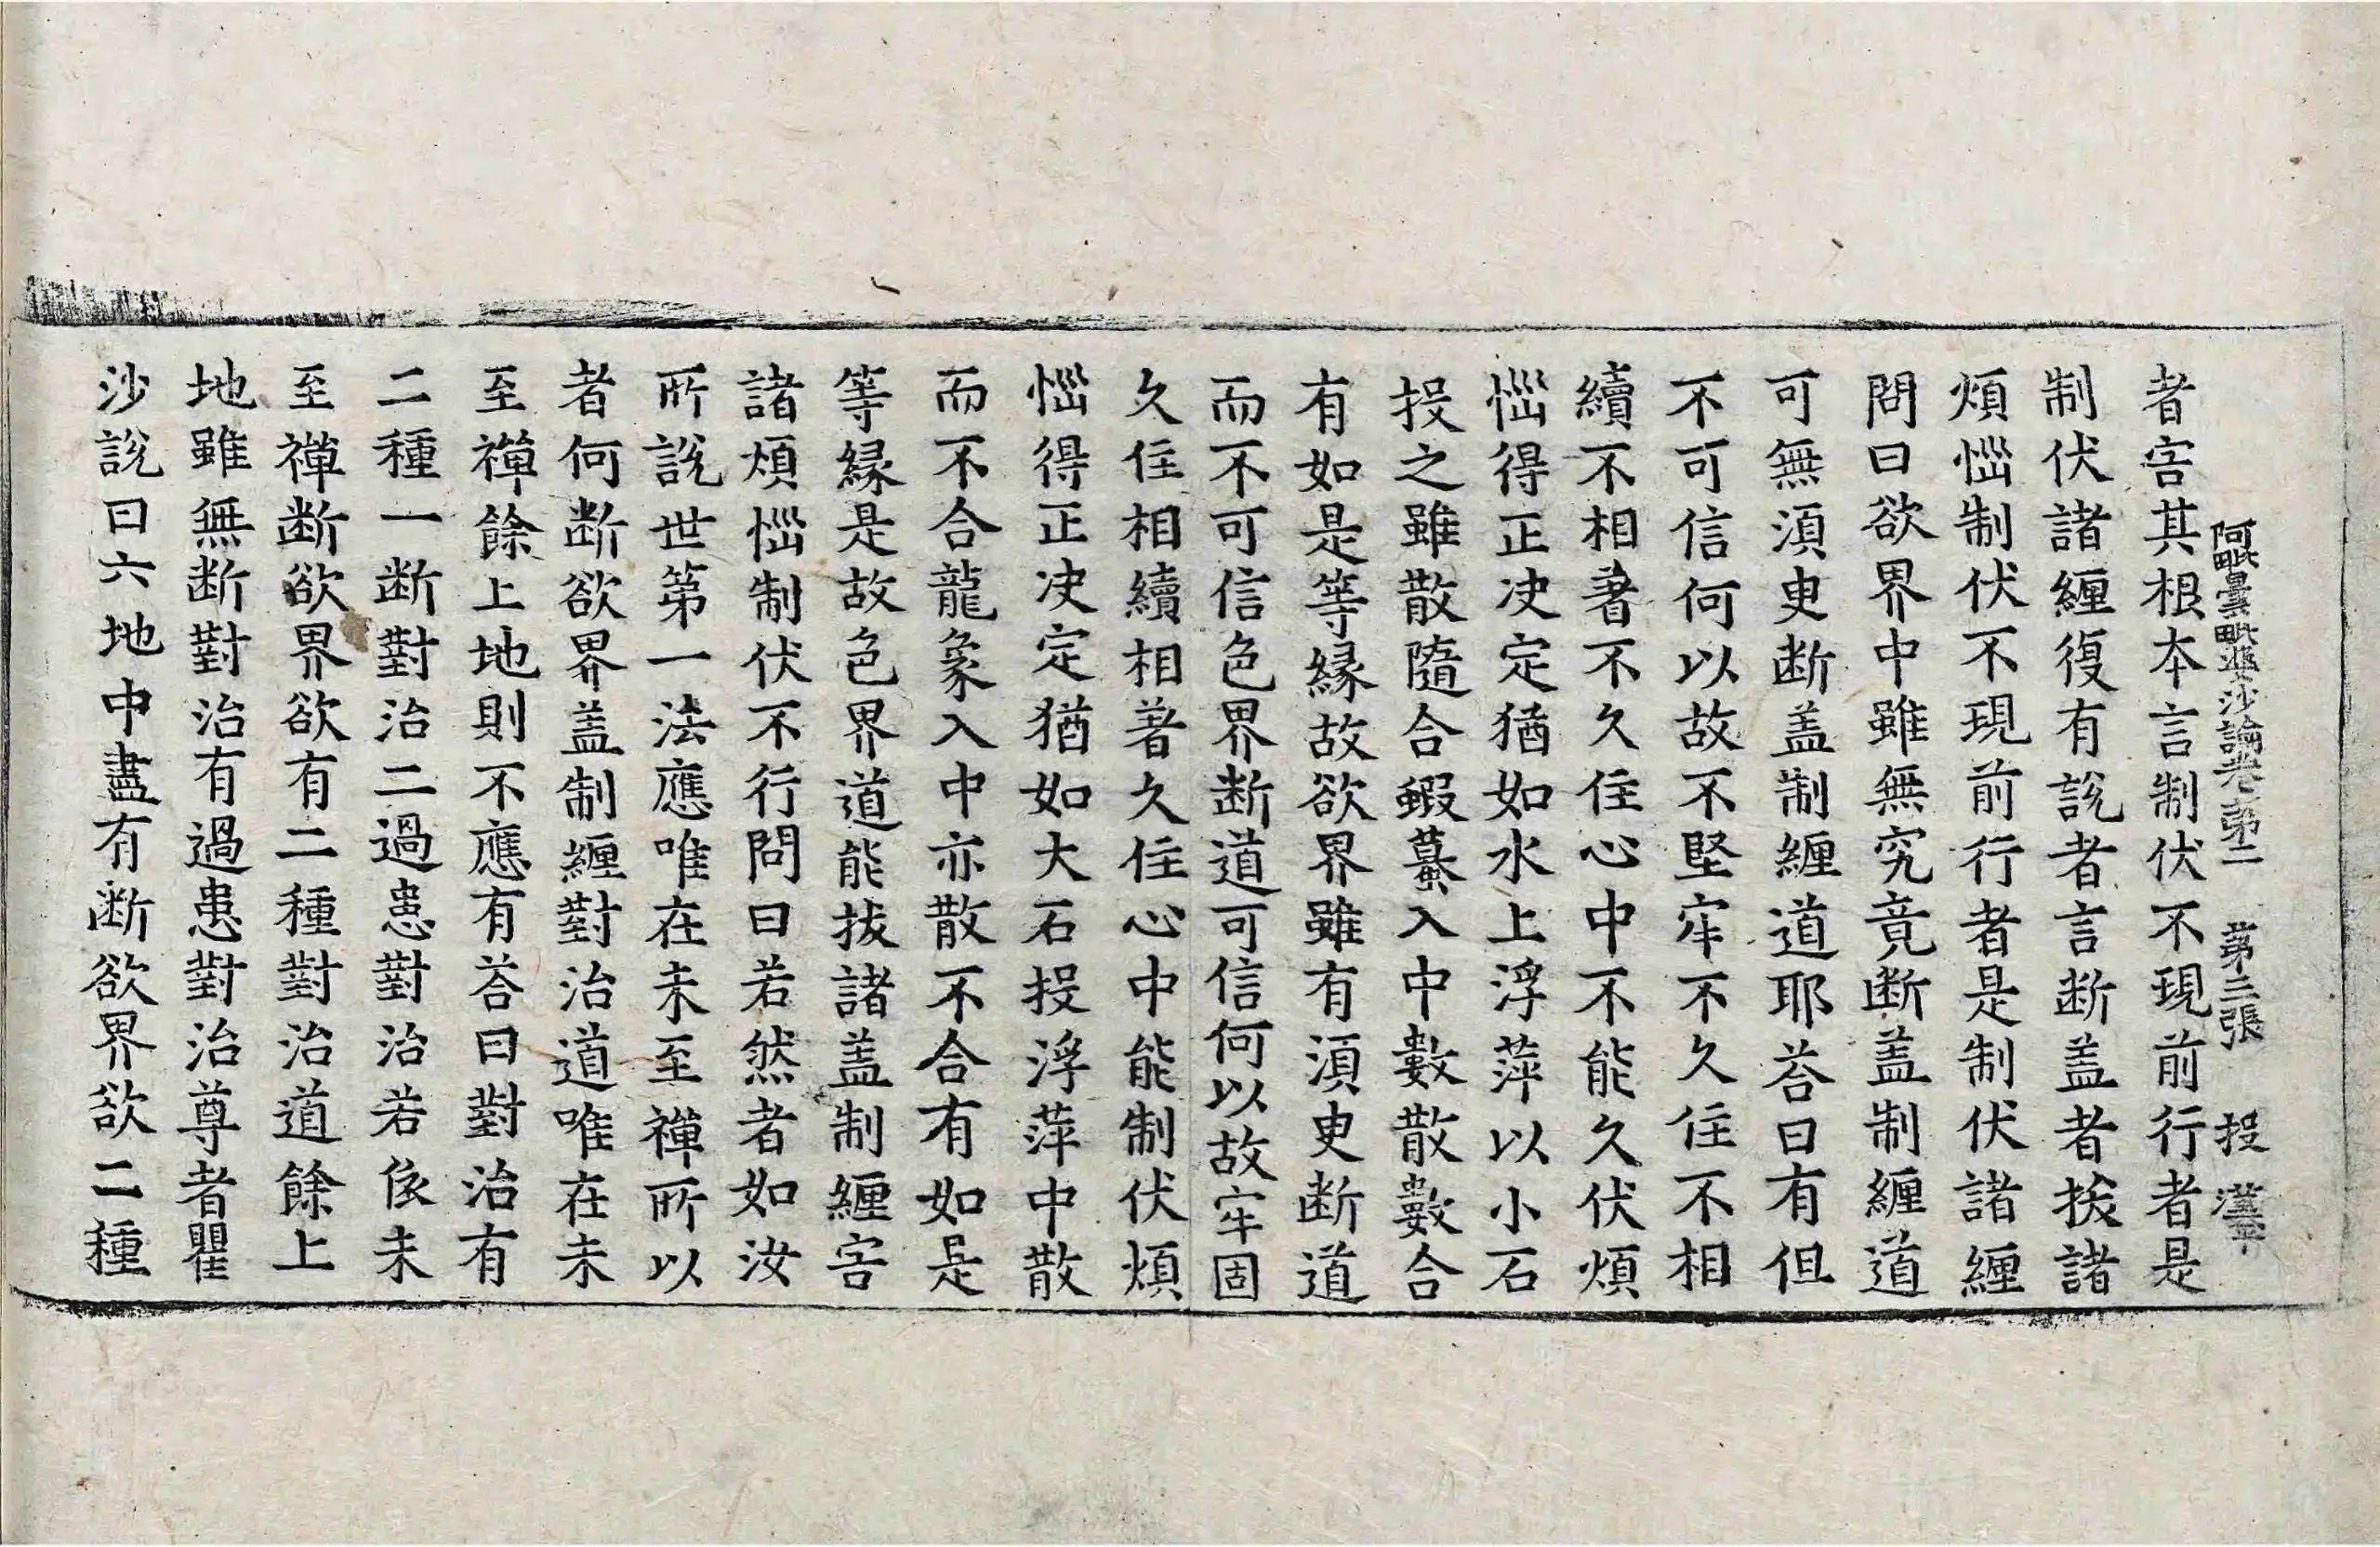 阿毗曇毗婆沙論卷第二 第三張 投
者害其根本言制伏不現前行者是
制伏諸纏復有說者言断盖者拔諸
煩惱制伏不現前行者是制伏諸纏
問曰欲界中雖無究竟断盖制纏道
可無湏更断盖制纏道耶荅曰有但
不可信何以故不堅牢不久住不相
續不相著不久住心中不能久伏煩
惱得正决定猶如水上浮萍以小石
投之雖散隨合蝦蟇入中數散數合
有如是等縁故欲界雖有湏更断道
而不可信色界断道可信何以故牢固
久住相續相著久住心中能制伏煩
惱得正决定猶如大石投浮萍中散
而不合龍象入中亦散不合有如是
等縁是故色界道能拔諸盖制纏害
諸煩惱制伏不行問曰若然者如汝
所說世第一法應唯在未至禪所以
者何断欲界盖制纏對治道唯在未
至禪餘上地則不應有荅曰對治有
二種一断對治二過患對治若依未
至禪断欲界欲有二種對治道餘上
地雖無断對治有過患對治尊者瞿
沙說曰六地中盡有断欲界欲二種